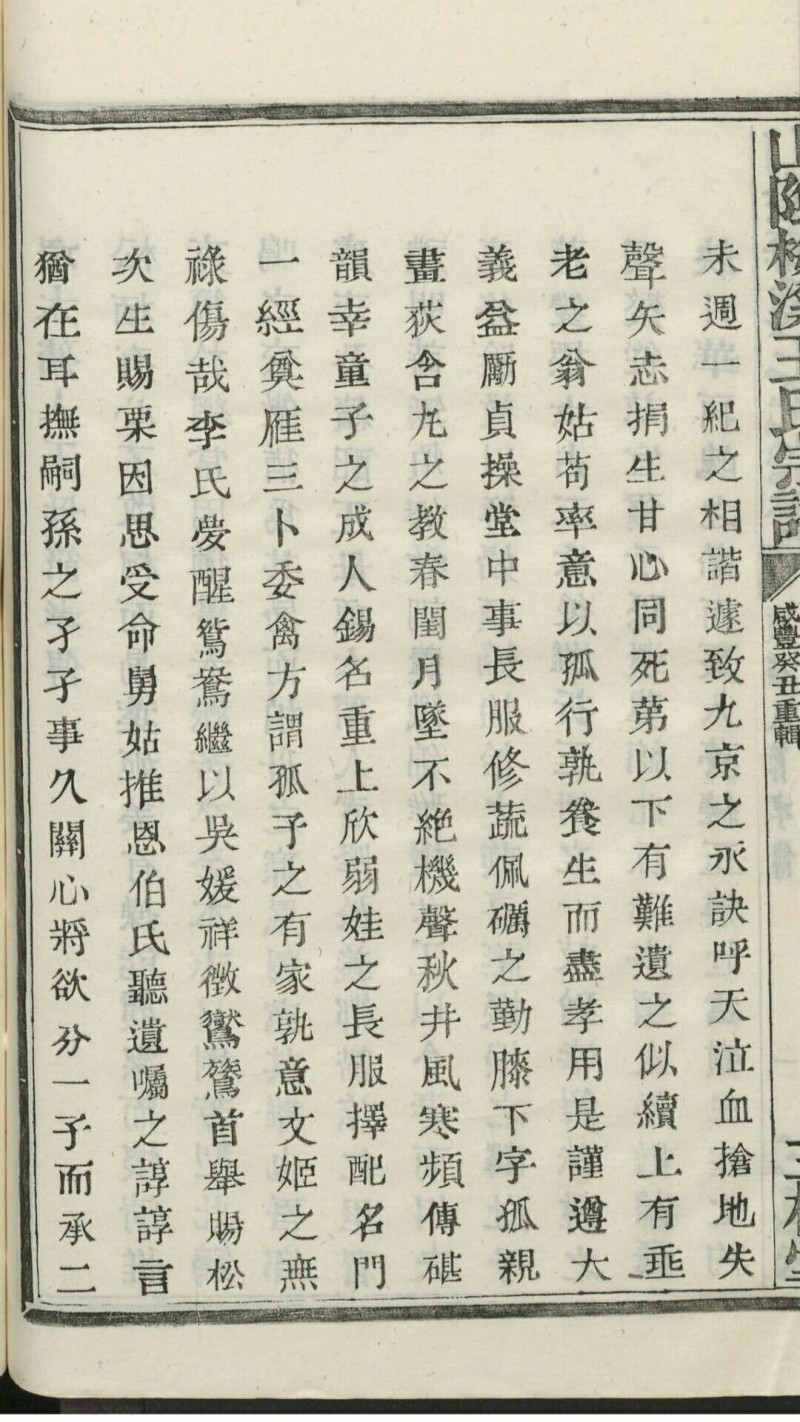 山陰梅溪王氏宗譜 咸豐癸丑重輯 三槐堂
未週一紀之相諧遽致九京之永訣呼天泣血搶地失
聲矢志捐生甘心同死第以下有難遺之似續上有垂
老之翁姑苟率意以孤行孰養生而盡孝用是謹遵大
義益勵貞操堂中事長服修蔬佩礪之勤膝下字孤親
畫荻含九之教春閨月墜不絕機聲秋井風寒頻傳碪
韻幸童子之成人錫名重上欣弱娃之長服擇配名門
一經奠雁三卜委禽方謂孤子之有家孰意文姬之無
祿傷哉李氏夢醒鴛鴦繼以吳媛祥徵鸑鷟首舉賜松
次生賜栗因思受命舅姑推恩伯氏聽遺囑之諄諄言
猶在耳撫嗣孫之孑孑事久關心將欲分一子而承二